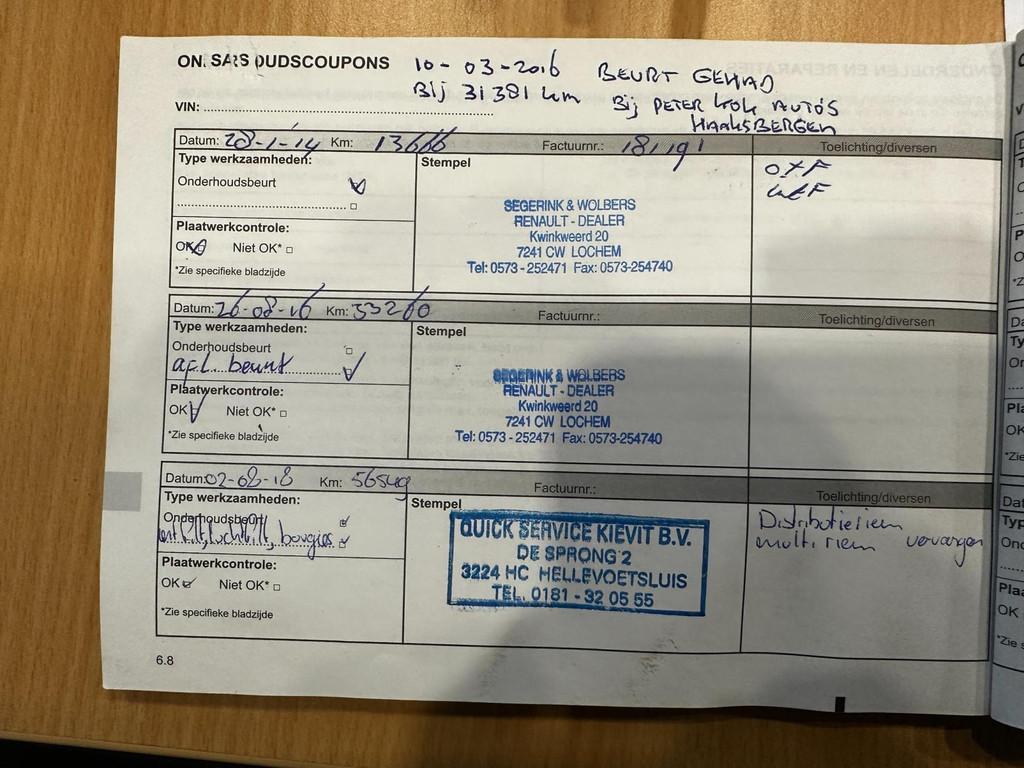 ON SA S OUDSCOUPONS
10-03-2016 BEURT GEHAD
Bij 31381 km Bij PETER KOK AUTO'S
HAAKSBERGEN
VIN:
Datum: 28-1-14 Km: 13666 Factuurnr.: 18119 Toelichting/diversen
Type werkzaamheden: Stempel
Onderhoudsbeurt
Plaatwerkcontrole:
OK Niet OK*
*Zie specifieke bladzijde
SEGERINK & WOLBERS
RENAULT - DEALER
Kwinkweerd 20
7241 CW LOCHEM
Tel: 0573 - 252471 Fax: 0573-254740
O+F
Datum: 26-08-16 Km: 33260 Factuurnr.: Toelichting/diversen
Type werkzaamheden: Stempel
Onderhoudsbeurt
afl. beurt
Plaatwerkcontrole:
OK Niet OK*
*Zie specifieke bladzijde
SEGERINK & WOLBERS
RENAULT - DEALER
Kwinkweerd 20
7241 CW LOCHEM
Tel: 0573 - 252471 Fax: 0573-254740
Datum: 02-08-18 Km: Factuurnr.: Toelichting/diversen
Type werkzaamheden: Stempel
Onderhoudsbeurt
luchtfilt, bougies
Plaatwerkcontrole:
OK Niet OK*
*Zie specifieke bladzijde
QUICK SERVICE KIEVIT B.V.
DE SPRONG 2
3224 HC HELLEVOETSLUIS
TEL. 0181 - 32 05 55
Distributieriem
multiriem vervangen
6.8